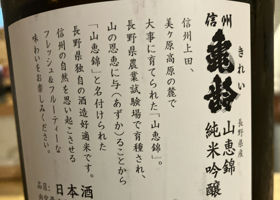 信州
亀齢
きれい
長野県産
山恵錦
純米吟醸
信州上田、
美ヶ原高原の麓で
大事に育てられた「山恵錦」。
長野県農業試験場で育種され、
山の恩恵に与(あずか)ることから
「山恵錦」と名付けられた
長野県独自の酒造好適米です。
信州の自然を思い起こさせる
フレッシュ&フルーティーな
味わいをお楽しみください。
日本酒